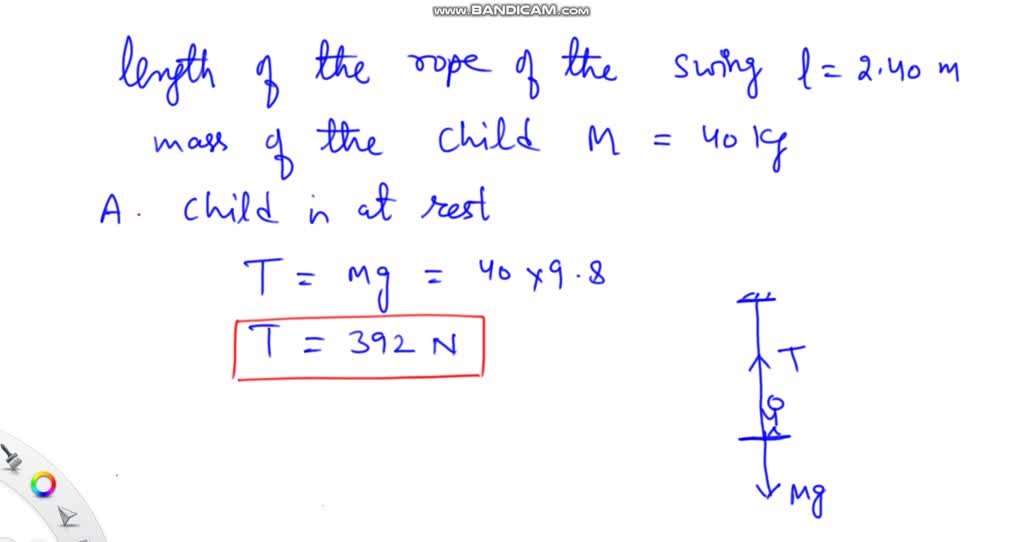 www.BANDICAM.com
length of the rope of the swing l = 2.40 m
mass of the child M = 40 kg
A. child is at rest
T = Mg = 40 × 9.8
T = 392 N
T
Mg